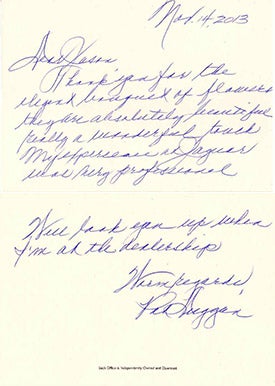 Nov. 14, 2013
Dear Jason,
Thank you for the
elegant bouquet of flowers
they are absolutely beautiful
really a wonderful touch
My experience in Jaguar
was very professional
Will look you up when
I'm at the dealership
Warm regards,
Pat Duggan
Each Office is Independently Owned and Operated